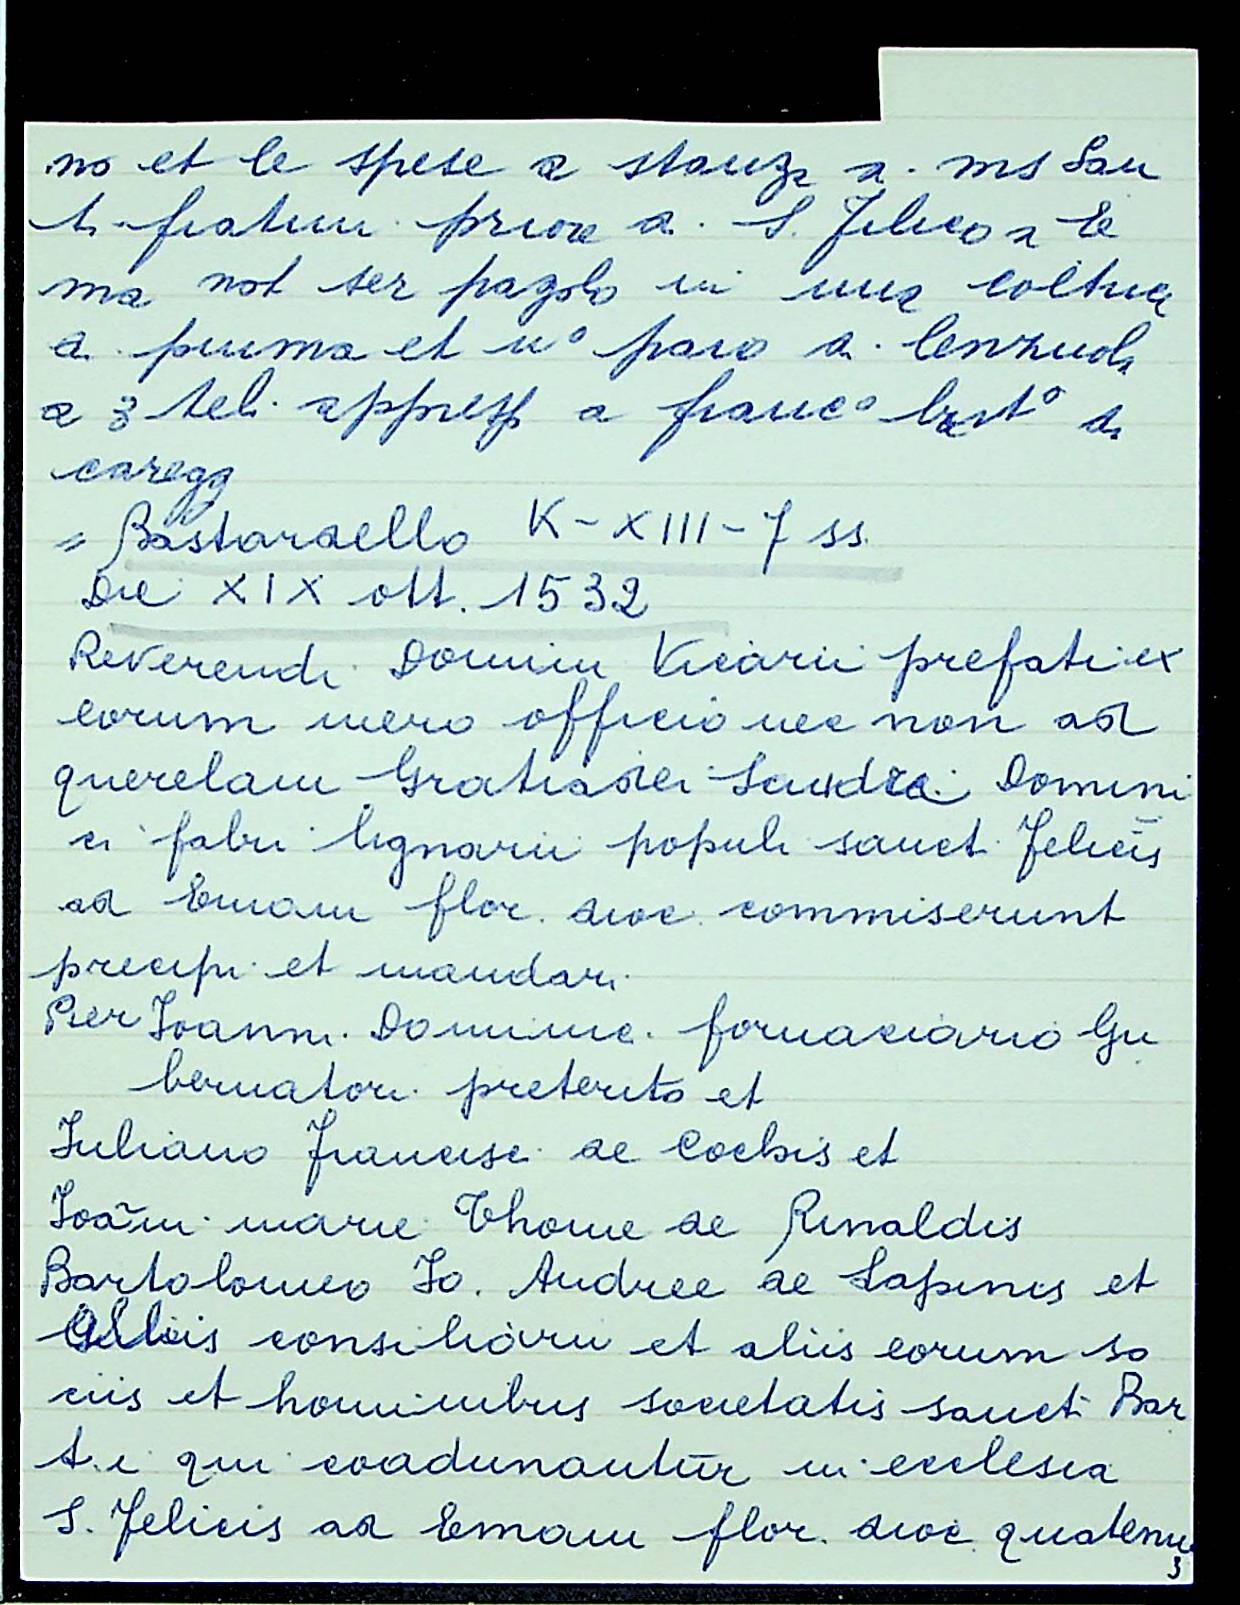 no et le spese a stanza di ms San
ti fratini priore di S. Felico a E
ma not ser pagolo in una coltrice
di piuma et uº paro di lenzuola
a 3 teli appresso a francº bartº di
caregg
= Bastardello K - XIII - 7 ss.
Die XIX ott. 1532
Reverendi Domini Vicarii prefati ex
eorum mero officio nec non ad
querelam Gratiadei Sandri Domini
ci fabri lignarii populi sancti Felicis
ad Emam flor. dioc. commiserunt
precipi et mandari
Pier Joanni Dominic. fornaciario Gu
bernatori preterito et
Juliano Francisci de Cochis et
Joãni marie Thome de Rinaldis
Bartolomeo Jo. Andree de Lapinis et
consiliarii et aliis eorum so
ciis et hominibus societatis sancti Bar
t.i qui coadunantur in ecclesia
S. Felicis ad Emam flor. dioc. quatenus
3